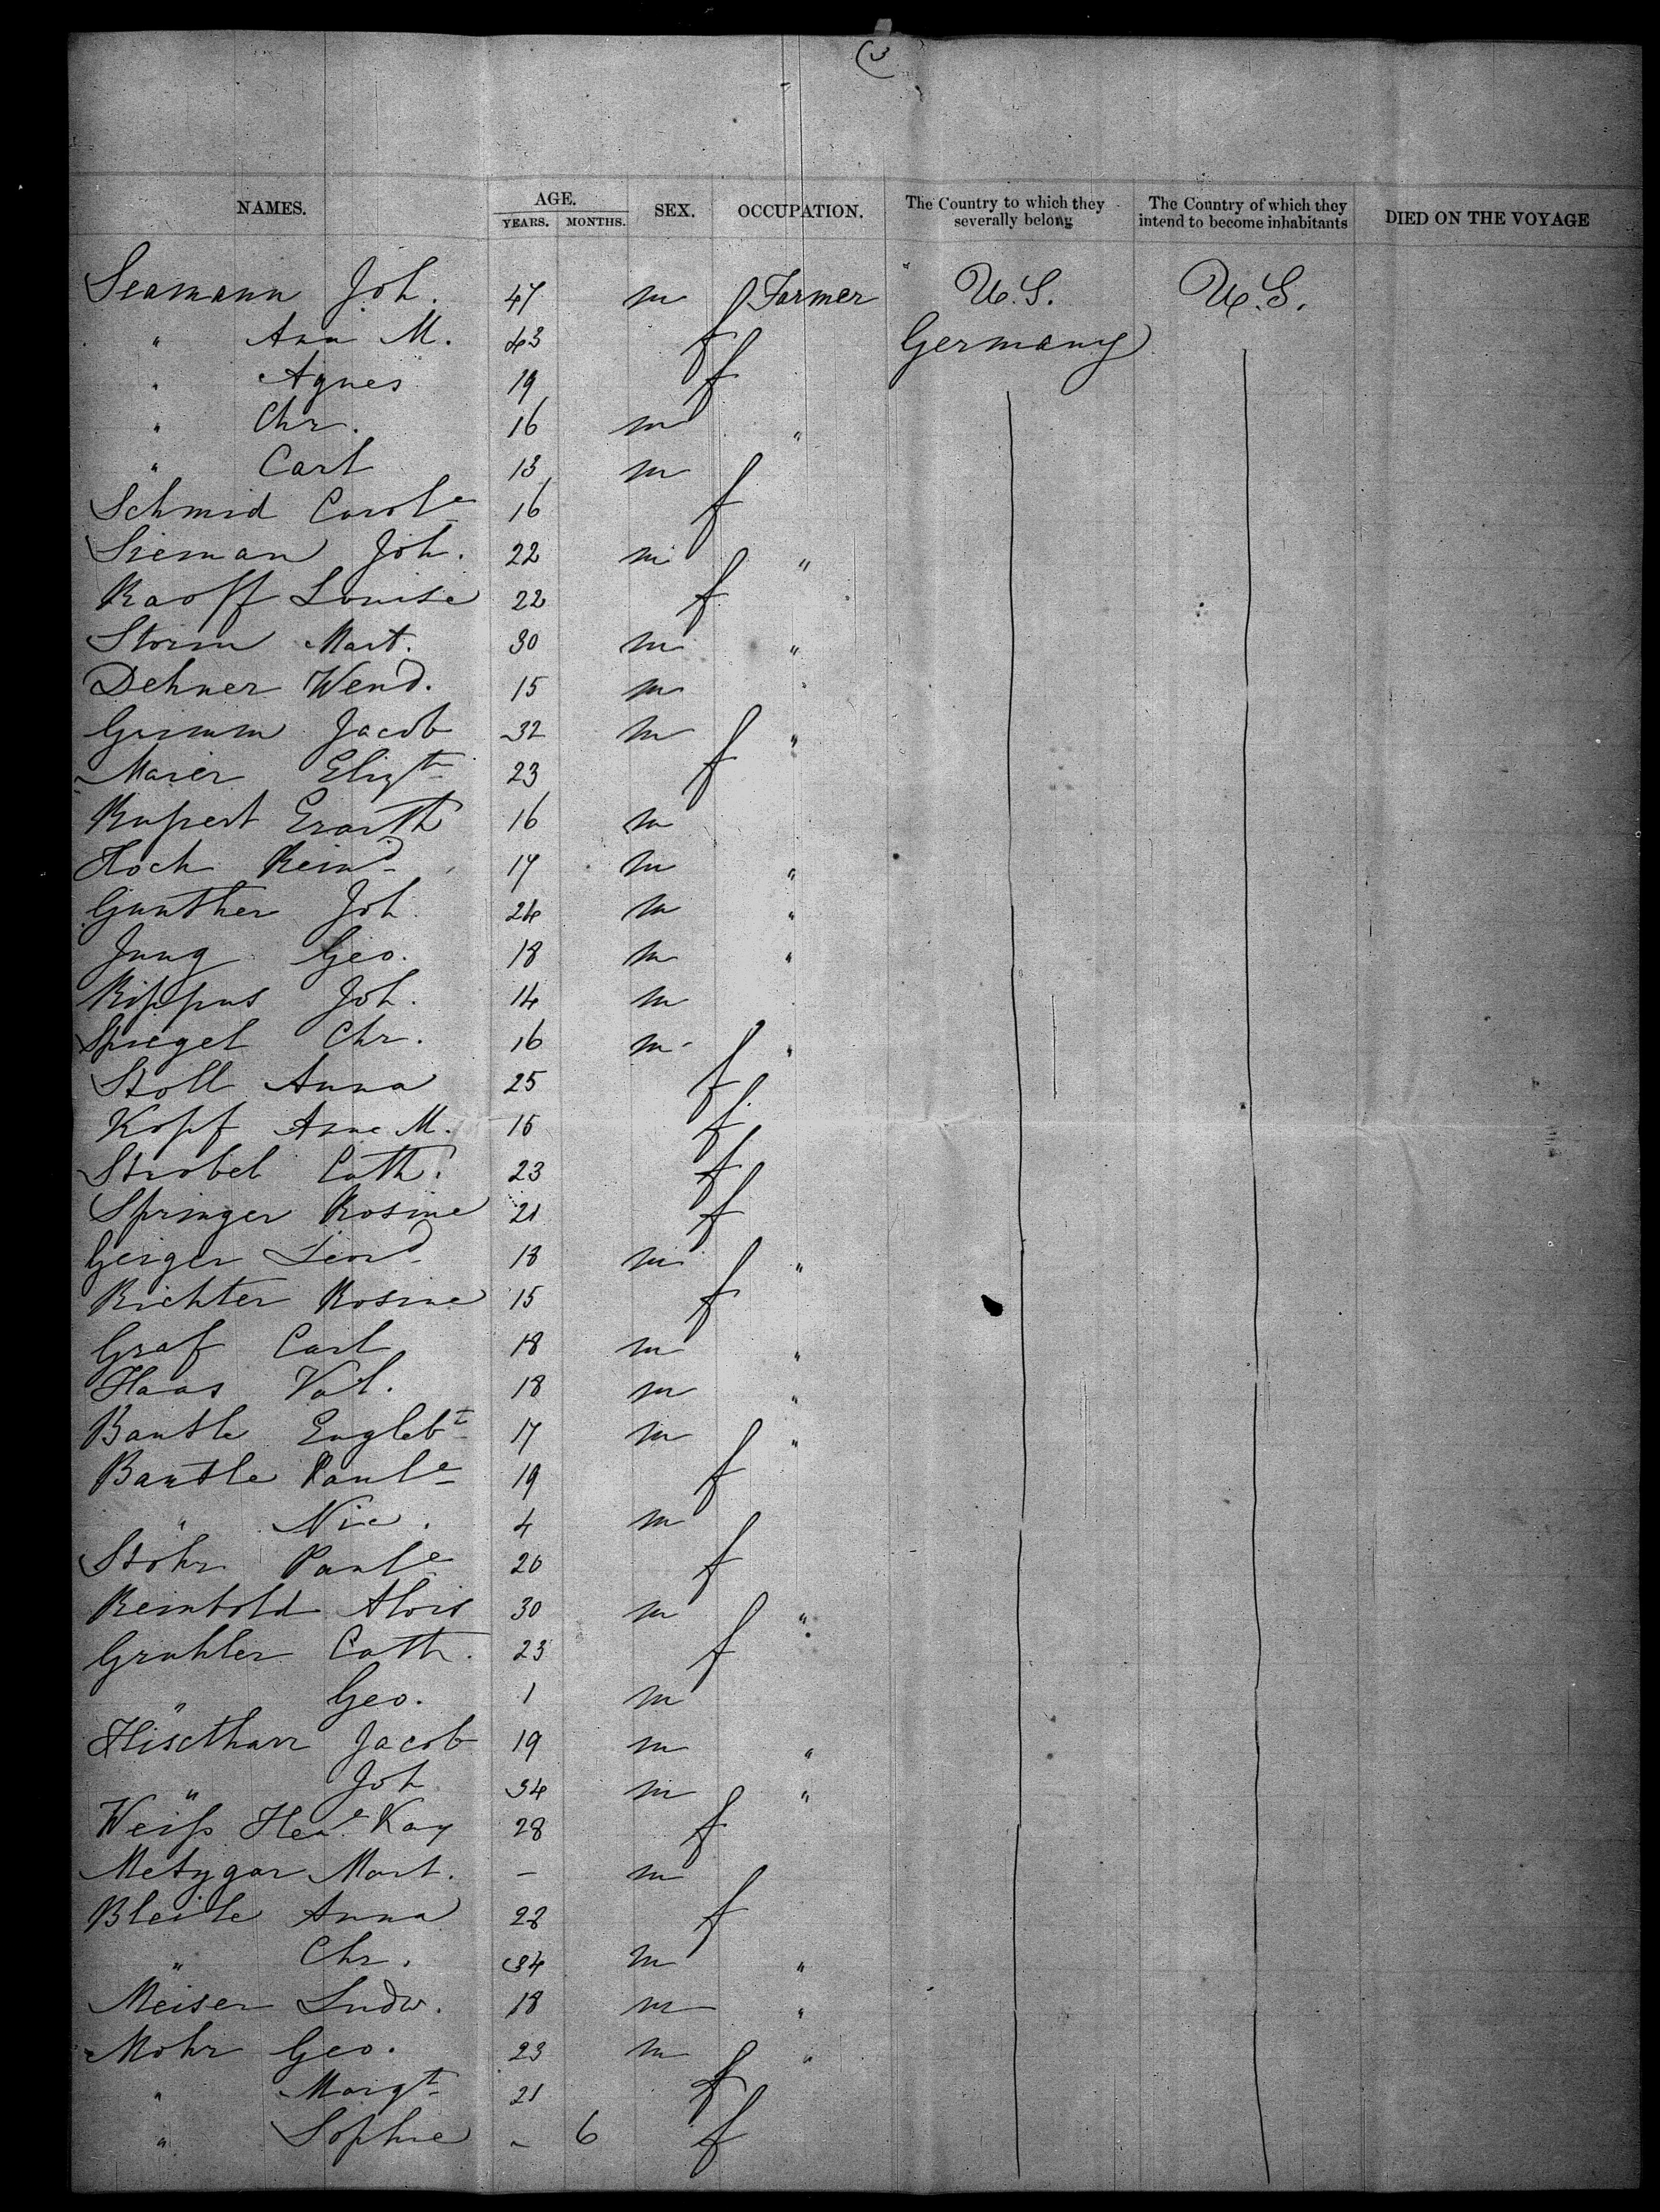 (3
NAMES. AGE. YEARS. MONTHS. SEX. OCCUPATION. The Country to which they severally belong The Country of which they intend to become inhabitants DIED ON THE VOYAGE
Seamann Joh. 47 m Farmer U.S. U.S.
" Ann M. 43 f Germany
" Agnes 19 f
" Chr. 16 m "
" Carl 13 m
Schmid Carole 16 f
Sieman Joh. 22 m "
Raoff Louise 22 f
Storm Mart. 30 m "
Dehner Wend. 15 m
Grimm Jacob 32 m "
Maier Elizt 23 f
Rupert 16 m
Hoch Reind 17 m "
Gunther Joh. 24 m "
Jung Geo. 18 m "
Rippus Joh. 14 m
Spiegel Chr. 16 m "
Stoll Anna 25 f
Kopf Anne M. 15 f
Strobel Cath. 23 f
Springer Rosine 21 f
Geiger Leod 18 m "
Richter Rosine 15 f
Graf Carl 18 m "
Haas Val. 18 m "
Bantle Englebt 17 m "
Bantle Paule 19 f
" Nic. 4 m
Stohr Paule 20 f
Reinbold Alois 30 m "
Gruhler Cath. 23 f
" Geo. 1 m
Jacob 19 m "
" Joh 34 m "
Weiss 28 f
Metzgar Mart. - m
Bleile Anna 28 f
" Chr. 34 m "
Meiser Ludw. 18 m "
Mohr Geo. 23 m "
" Margt 21 f
" Sophie - 6 f